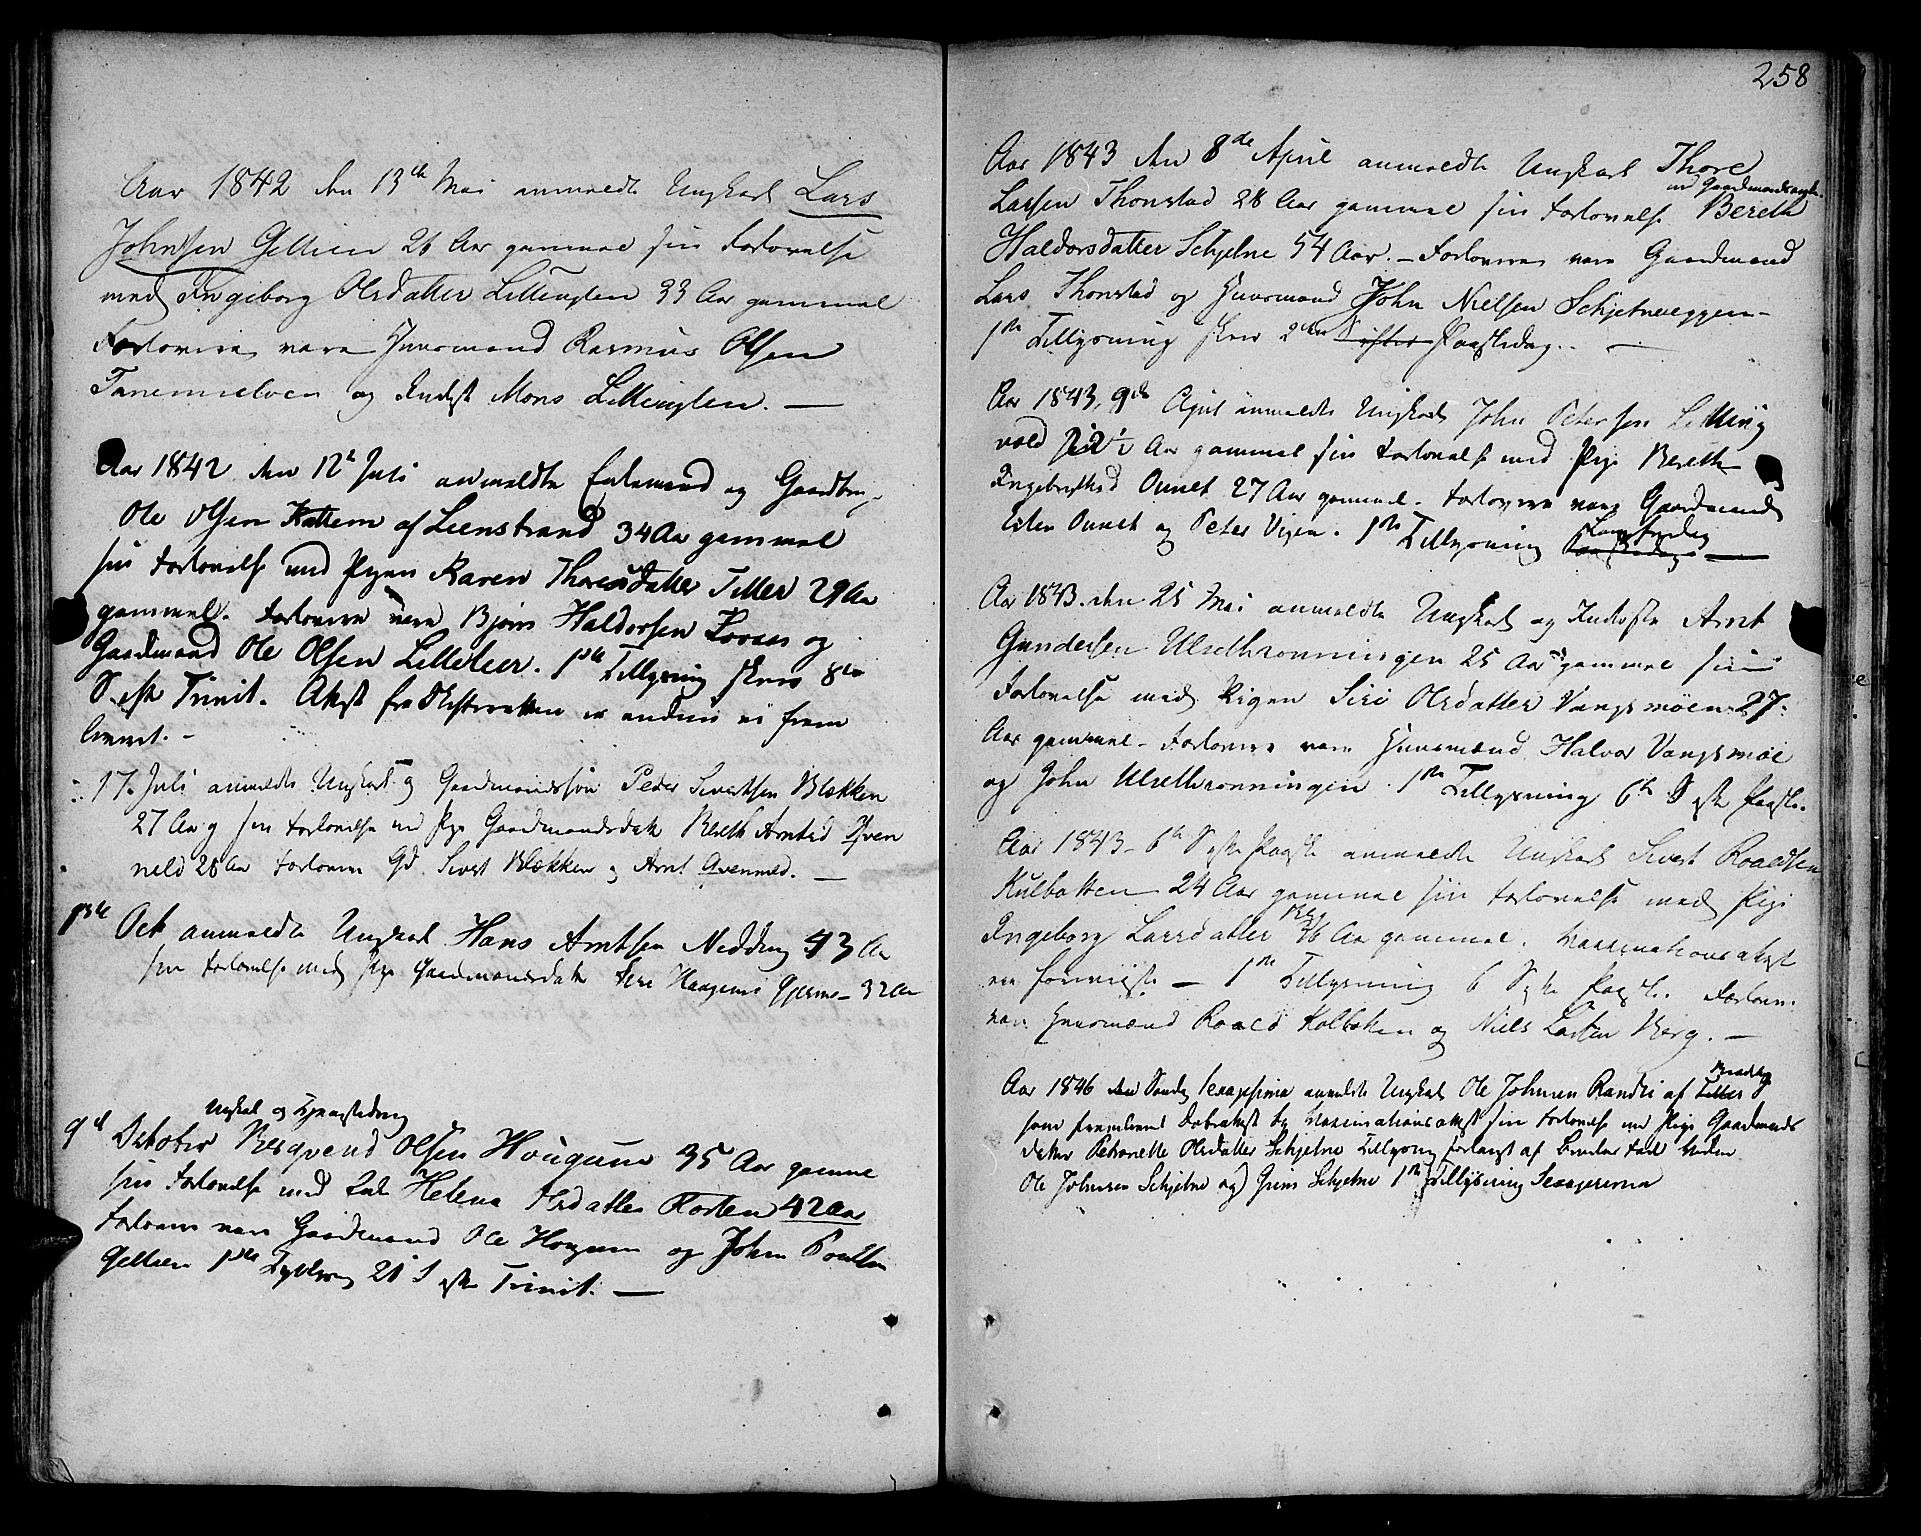 Aar 1842 den 13de Mai anmeldte Ungkarl Lars
Johnsen Gellien 26 Aar gammel sin Forlovelse
med Ingeborg Olsdatter Lilleuglen 33 Aar gammel
Forlovere vare Huusmand Rasmus Olsen
Tanemselven og Inderst Mons Lilleuglen. —
Aar 1842 den 12te Juli anmeldte Enkemand og Gaardbr.
Ole Olsen Kattem af Leenstrand 34 Aar gammel
sin Forlovelse med Pigen Karen Thoresdatter Tiller 29 Aar
gammel. Forlovere vare Bjørn Haldorsen og
Gaardmand Ole Olsen Lilleleer. 1ste Tillysning skeer 8de
S. eft Trinit. Attest fra Skifteretten er endnu ei frem
leveret. -
17. Juli anmeldte Ungkarl og Gaardmandssøn Peder Sivertsen Blækken
27 Aar g sin Forlovelse med Pige Gaardmandsdatt Bereth Arntsd Qven
nild 28 Aar Forlovere Gd. Sivert Blækken og Arnt Qvennild. —
1ste Oct anmeldte Ungkarl Hans Arntsen Nideng 43 Aar
sin Forlovelse med Pige Gaardmandsdatt Haagensd Gjerms - 32 Aar
Ungkarl og
9de October Bersvend Olsen Hougum 35 Aar gamme
sin Forlovelse med Enke Helena Olsdatter Rosten 42 Aar
Forlovere vare Gaardmand Ole Hougum og John Poulsen
Gellien 1ste Tyslysng 21 S eft Trinit. —
258
Aar 1843 den 8de April anmeldte Ungkarl Thore
med Gaardmandsenke
Larsen Thonstad 28 Aar gammel sin Forlovelse Bereth
Haldorsdatter Schjelne 54 Aar. — Forlovere vare Gaardmand
Lars Thonstad og Huusmand John Nielsen Schjetneeggen -
1ste Tillysning skeer 2den S. efter Paaskedag. —
Aar 1843, 9de April anmeldte Ungkarl John Petersen Lilling
vold 22½ Aar gammel sin Forlovelse med Pige Bereth
Ingebrigtsd Ounet 27 Aar gammel. Forlovere vare Gaardmænd
Esten Ounet og Peter Vigen. 1ste Tillysning Langfredag
Paaskedag. —
Aar 1843. den 25 Mai anmeldte Ungkarl og Inderste Arnt
Gundersen Ulsethrønningen 25 Aar gammel sin
Forlovelse med Pigen Siri Olsdatter Vangsmoen 27.
Aar gammel - Forlovere vare Huusmænd Halvor Vangsmoe
og John Ulsethrønningen. 1ste Tillysning 6te S eft Paaske.
Aar 1843 - 6te S eft Paaske anmeldte Ungkarl Sivert Roaldsen
Kulbotten 24 Aar gammel sin Forlovelse med Pige
Ingeborg Larsdatter 26 Aar gammel. Vaccinationsattest
er foreviist — 1ste Tillysning 6 S eft Paaske. Forlovere
vare Huusmænd Roald Kolbotten og Niels Larsen Berg. —
Aar 1846 Søndag Sexagesima anmeldte Ungkarl Ole Johnsen Randli af Tiller
som fremleverede Døbeattest og Vaccinationsattest sin Forlovelse med Pige Gaardmands
datter Petronelle Olsdatter Schjelne Tillysning forlangt af
Ole Johnsen Schjelne og Jens Schjelne 1ste Tillysning Sexagesima